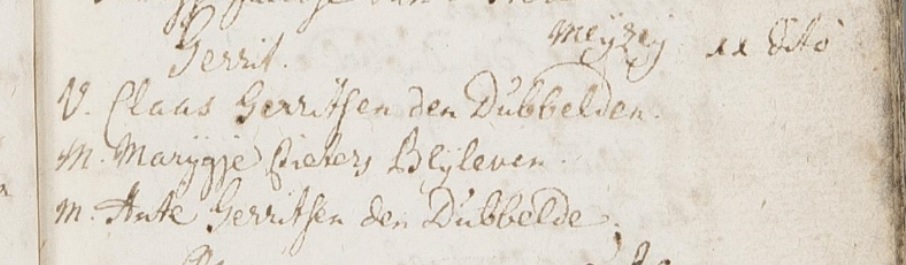 Gerrit.
V. Claas Gerritsen den Dubbelden.
M. Marijgje Pieters Blijleven.
M. Ante Gerritsen den Dubbelde.